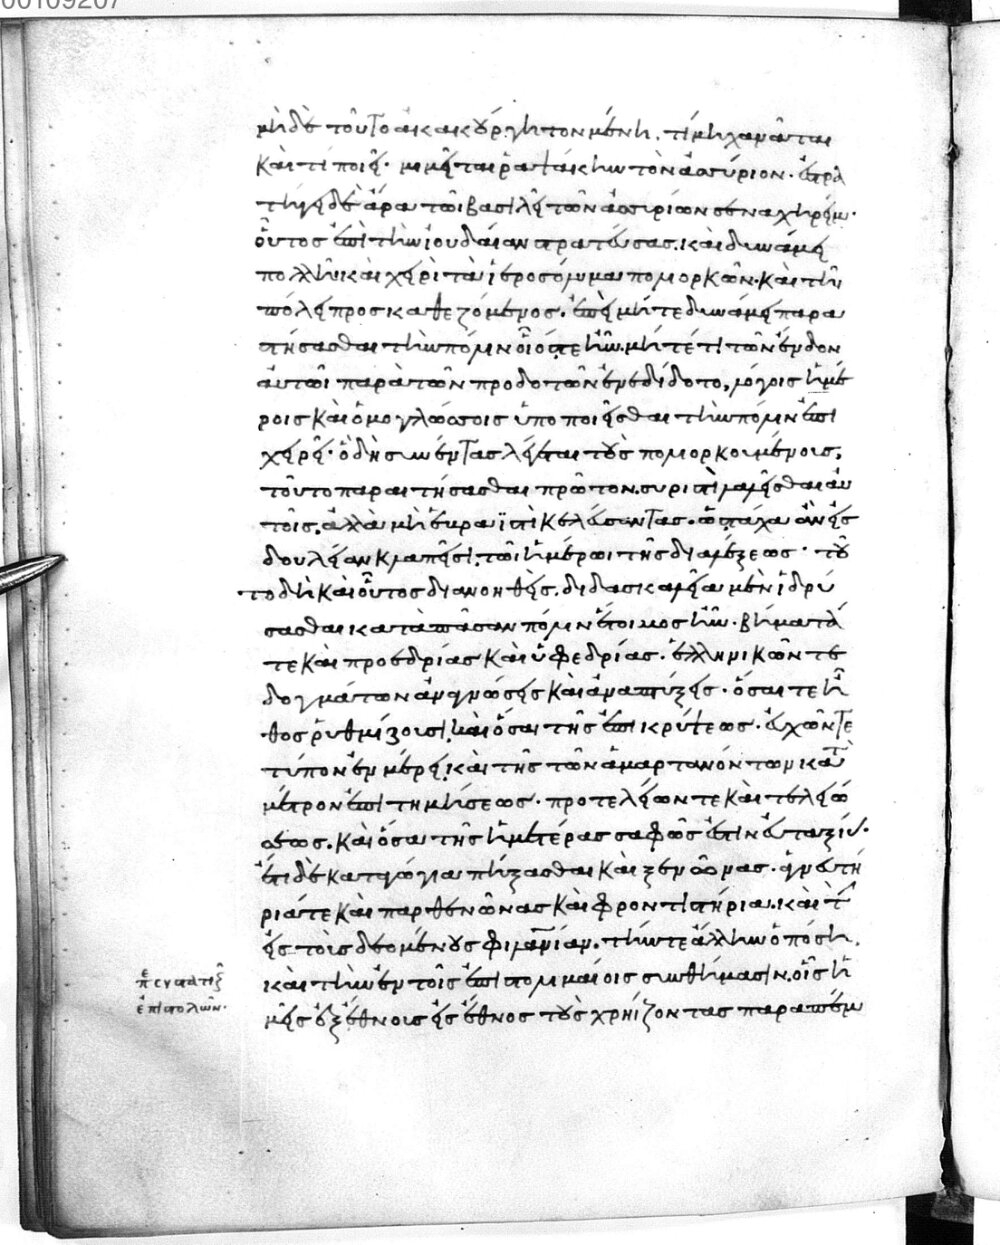 μὴ δὲ τοῦτο ἀκακούργητον μένῃ. τί μηχανᾶται
καὶ τί ποιεῖ· μιμεῖται ῥαψάκην τὸν ἀσσύριον· ἐστρα
τήγει δὲ ἄρα τῶι βασιλεῖ τῶν ἀσσυρίων σεναχηρείμ·
οὗτος ἐπὶ τὴν ἰουδαίαν στρατεύσας. καὶ δυνάμει
πολλῆι καὶ χειρὶ τὰ ἱεροσόλυμα πολιορκῶν· καὶ τῆι
πόλει προσκαθεζόμενος. ἐπεὶ μήτε δυνάμει παρα
στήσασθαι τὴν πόλιν οἷός τε ἦν. μήτέ τι τῶν ἔνδον
αὐτῶι παρὰ τῶν προδοτῶν ἐνεδίδοτο, λόγοις ἡμέ
ροις καὶ ὁμογλώσσοις ὑποποιεῖσθαι τὴν πόλιν ἐπι
χειρεῖ· ὃ δὴ συνέντας λέγεται τοὺς πολιορκουμένους,
τοῦτο παραιτήσασθαι πρῶτον. συριστὶ λαλεῖσθαι αὐ
τοῖς. ἀλλὰ μὴ ἑβραϊστὶ κελεύσαντας· ὡς τάχα ἂν εἰς
δουλείαν κλαπεῖσι τῶι ἡμέρωι τῆς διαλέξεως· τοῦ
το δὴ καὶ οὗτος διανοηθεὶς. διδασκαλεῖα μὲν ἱδρύ
σασθαι κατὰ πᾶσαν πόλιν ἕτοιμος ἦν· βήματά
τε καὶ προεδρίας καὶ ὑφεδρίας· ἑλληνικῶν τε
δογμάτων ἀναγνώσεις καὶ ἀναπτύξεις· ὅσαι τε ἦ
θος ῥυθμίζουσι, καὶ ὅσαι τῆς ἐπικρύψεως· εὐχῶν τε
τύπον ἐν μέρει, καὶ τῆς τῶν ἁμαρτανόντων κατὰ
μέτρον ἐπιτιμήσεως· προτελείων τε καὶ τελειώ
σεως. καὶ ὅσα τῆς ἡμετέρας σαφῶς ἐστὶν εὐταξίας·
ἔτι δὲ καταγώγια πήξασθαι καὶ ξενῶνας· ἁγνευτή
ριά τε καὶ παρθενῶνας καὶ φροντιστήρια. καὶ τὴν
εἰς τοὺς δεομένους φιλανίαν. τήν τε ἄλλην ὁπόση.
καὶ τὴν ἐν τοῖς ἐπιστολιμαίοις συνθήμασιν. οἷς ἡ
μεῖς ἐξ ἔθνους εἰς ἔθνος τοὺς χρήιζοντας παραπέμ
ἐπιστολῶν·